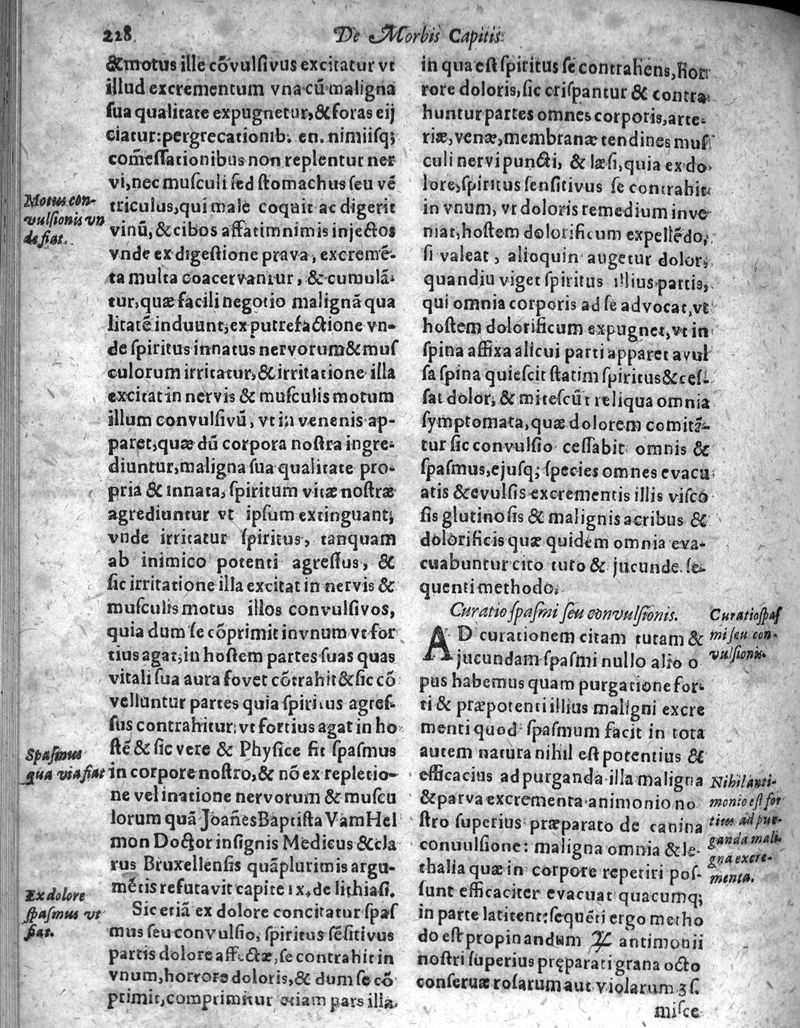 228
De Morbis Capitis
&motus ille cõvulſivus excitatur vt
illud excrementum vna cũ maligna
ſua qualitate expugnetur,&foras eij
ciatur:pergrecationib. en. nimiiſq;
com̃eſſationibus non replentur ner
vi,nec muſculi ſed ſtomachus ſeu vẽ
triculus,qui male coquit ac digerit
vinũ,&cibos affatim nimis injectos
vnde ex digeſtione prava, excremẽ-
ta multa coacervantur, &cumulã-
tur,quæ facili negotio malignã qua
litatẽ induunt,ex putrefactione vn-
de ſpiritus innatus nervorum&muſ
culorum irritatur,&irritatione illa
excitat in nervis & muſculis motum
illum convulſivũ, vt in venenis ap-
paret,quæ dũ corpora noſtra ingre-
diuntur,maligna ſua qualitate pro-
pria & innata, ſpiritum vitæ noſtræ
agrediuntur vt ipſum extinguant,
vnde irritatur ſpiritus, tanquam
ab inimico potenti agreſſus, &
ſic irritatione illa excitat in nervis &
muſculis motus illos convulſivos,
quia dum ſe cõprimit in vnum vt for
tius agat,in hoſtem partes ſuas quas
vitali ſua aura fovet cõtrahit&ſic cõ
velluntur partes quia ſpiritus agreſ-
ſus contrahitur: vt fortius agat in ho
ſtẽ & ſic vere & Phyſice fit ſpaſmus
in corpore noſtro,& nõ ex repletio-
ne vel inatione nervorum & muſcu
lorum quã Joañes Baptiſta Vam Hel
mon Doctor inſignis Medicus &cla
rus Bruxellenſis quãplurimis argu-
mẽtis refutavit capite ix, de lithiaſi.
Sic etiã ex dolore concitatur ſpaſ
mus ſeu convulſio, ſpiritus ſẽſitivus
partis dolore affectæ, ſe contrahit in
vnum,horrore doloris,& dum ſe cõ
primit,comprimitur etiam pars illa,
Motus con-
vulſionis vn
de fiat.
Spaſmus
qua via fiat
Ex dolore
ſpaſmus vt
fiat.
in qua eſt ſpiritus ſe contrahens,Hor
rore doloris,ſic criſpantur & contra
huntur partes omnes corporis,arte-
riæ,venæ,membranæ tendines muſ
culi nervi puncti, & læſi,quia ex do
lore,ſpiritus ſenſitivus ſe contrahit
in vnum, vt doloris remedium inve
niat,hoſtem dolorificum expellẽdo,
ſi valeat, alioquin augetur dolor,
quandiu viget ſpiritus illius partis,
qui omnia corporis ad ſe advocat,vt
hoſtem dolorificum expugnet,vt in
ſpina affixa alicui parti apparet avul
ſa ſpina quieſcit ſtatim ſpiritus&ceſ-
ſat dolor, & miteſcũt reliqua omnia
ſymptomata,quæ dolorem comitã-
tur ſic convulſio ceſſabit omnis &
ſpaſmus,ejuſq; ſpecies omnes evacu
atis &evulſis excrementis illis viſco
ſis glutinoſis & malignis acribus &
dolorificis quæ quidem omnia eva-
cuabuntur cito tuto & jucunde. ſe-
quenti methodo.
Curatio ſpaſmi ſeu convulſionis.
AD curationem citam tutam &
jucundam ſpaſmi nullo alio o
pus habemus quam purgatione for-
ti & præpotenti illius maligni excre
menti quod ſpaſmum facit in tota
autem natura nihil eſt potentius &
efficacius ad purganda illa maligna
&parva excrementa animonio no
ſtro ſuperius præparato de canina
conuulſione: maligna omnia &le-
thalia quæ in corpore reperiri poſ-
ſunt efficaciter evacuat quacumq;
in parte latitent:ſequẽti ergo metho
do eſt propinandum ℞ antimonii
noſtri ſuperius pręparati grana octo
conſeruæ roſarum aut violarum ʒſ.
miſce
Curatio ſpaſ
mi ſeu con-
vulſionis.
Nihil anti-
monio eſt for
tius ad pur-
ganda mali-
gna excre-
menta.